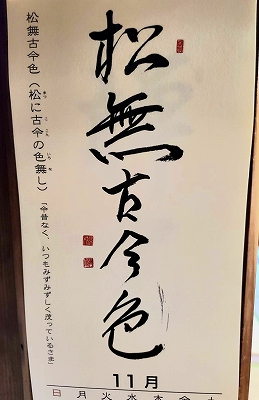 松無古今色
松無古今色（松に古今の色無し）
「今昔なく、いつもみずみずしく茂っているさま」
11月
日 月 火 水 木 金 土